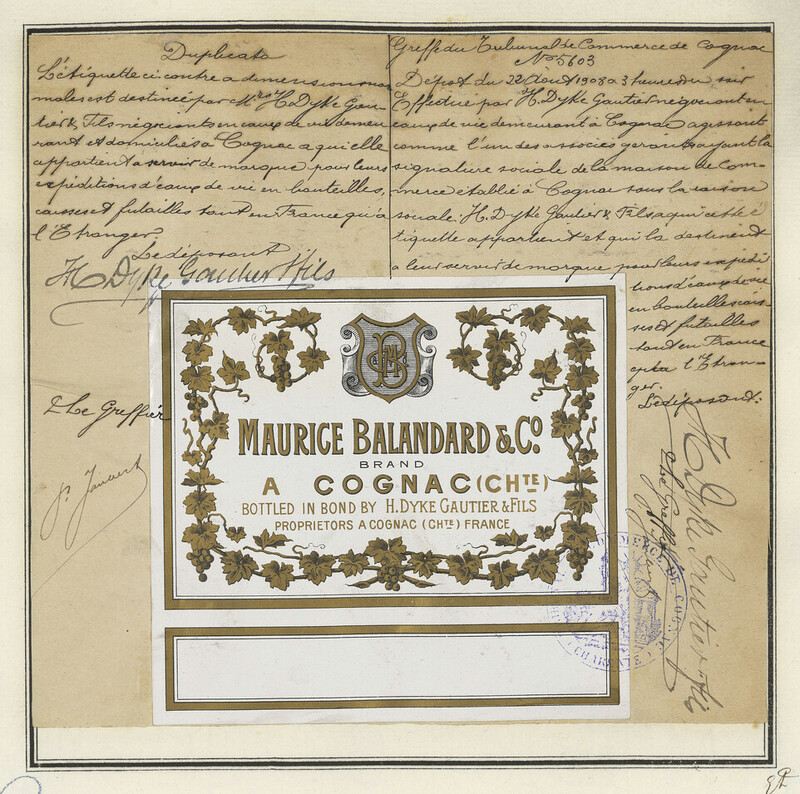 Duplicata
L'étiquette ci contre a dimensions nor
males est destinée par Mrs H. Dyke Gau-
tier & Fils négociants en eaux de vie demeu
rant et domiciliés à Cognac a qui elle
appartient a servir de marque pour leurs
expéditions d'eaux de vie en bouteilles,
caisses et futailles tant en France qu'à
l'Etranger.
Le déposant
H Dyke Gautier & fils
Le Greffier
Greffe du Tribunal de Commerce de Cognac
No 5603
Dépot du 22 Aout 1908 a 3 heures du soir
Effectué par H. Dyke Gautier négociant en
eaux de vie demeurant à Cognac agissant
comme l'un des associés gerants ayant la
signature sociale de la maison de Com-
merce établie à Cognac sous la raison
sociale: H. Dyke Gautier & Fils a qui cette é
tiquette appartient et qui la destinent
a leur servir de marque pour leurs expédi
tions d'eaux de vie
en bouteilles cais-
ses et futailles
tant en France
qu'a l'Etran-
ger.
Le déposant:
H Dyke Gautier & fils
Le Greffier
MAURICE BALANDARD & CO
BRAND
A COGNAC (CHTE)
BOTTLED IN BOND BY H. DYKE GAUTIER & FILS
PROPRIETORS A COGNAC (CHTE) FRANCE
COMMERCE DE COGNAC
CHARENTE